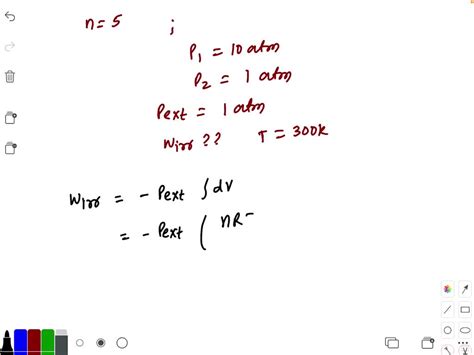 n = 5 ;
P₁ = 10 atm
P₂ = 1 atm
Pext = 1 atm
Wirr ?? T = 300k
Wirr = - Pext ∫ dv
= - Pext ( nR